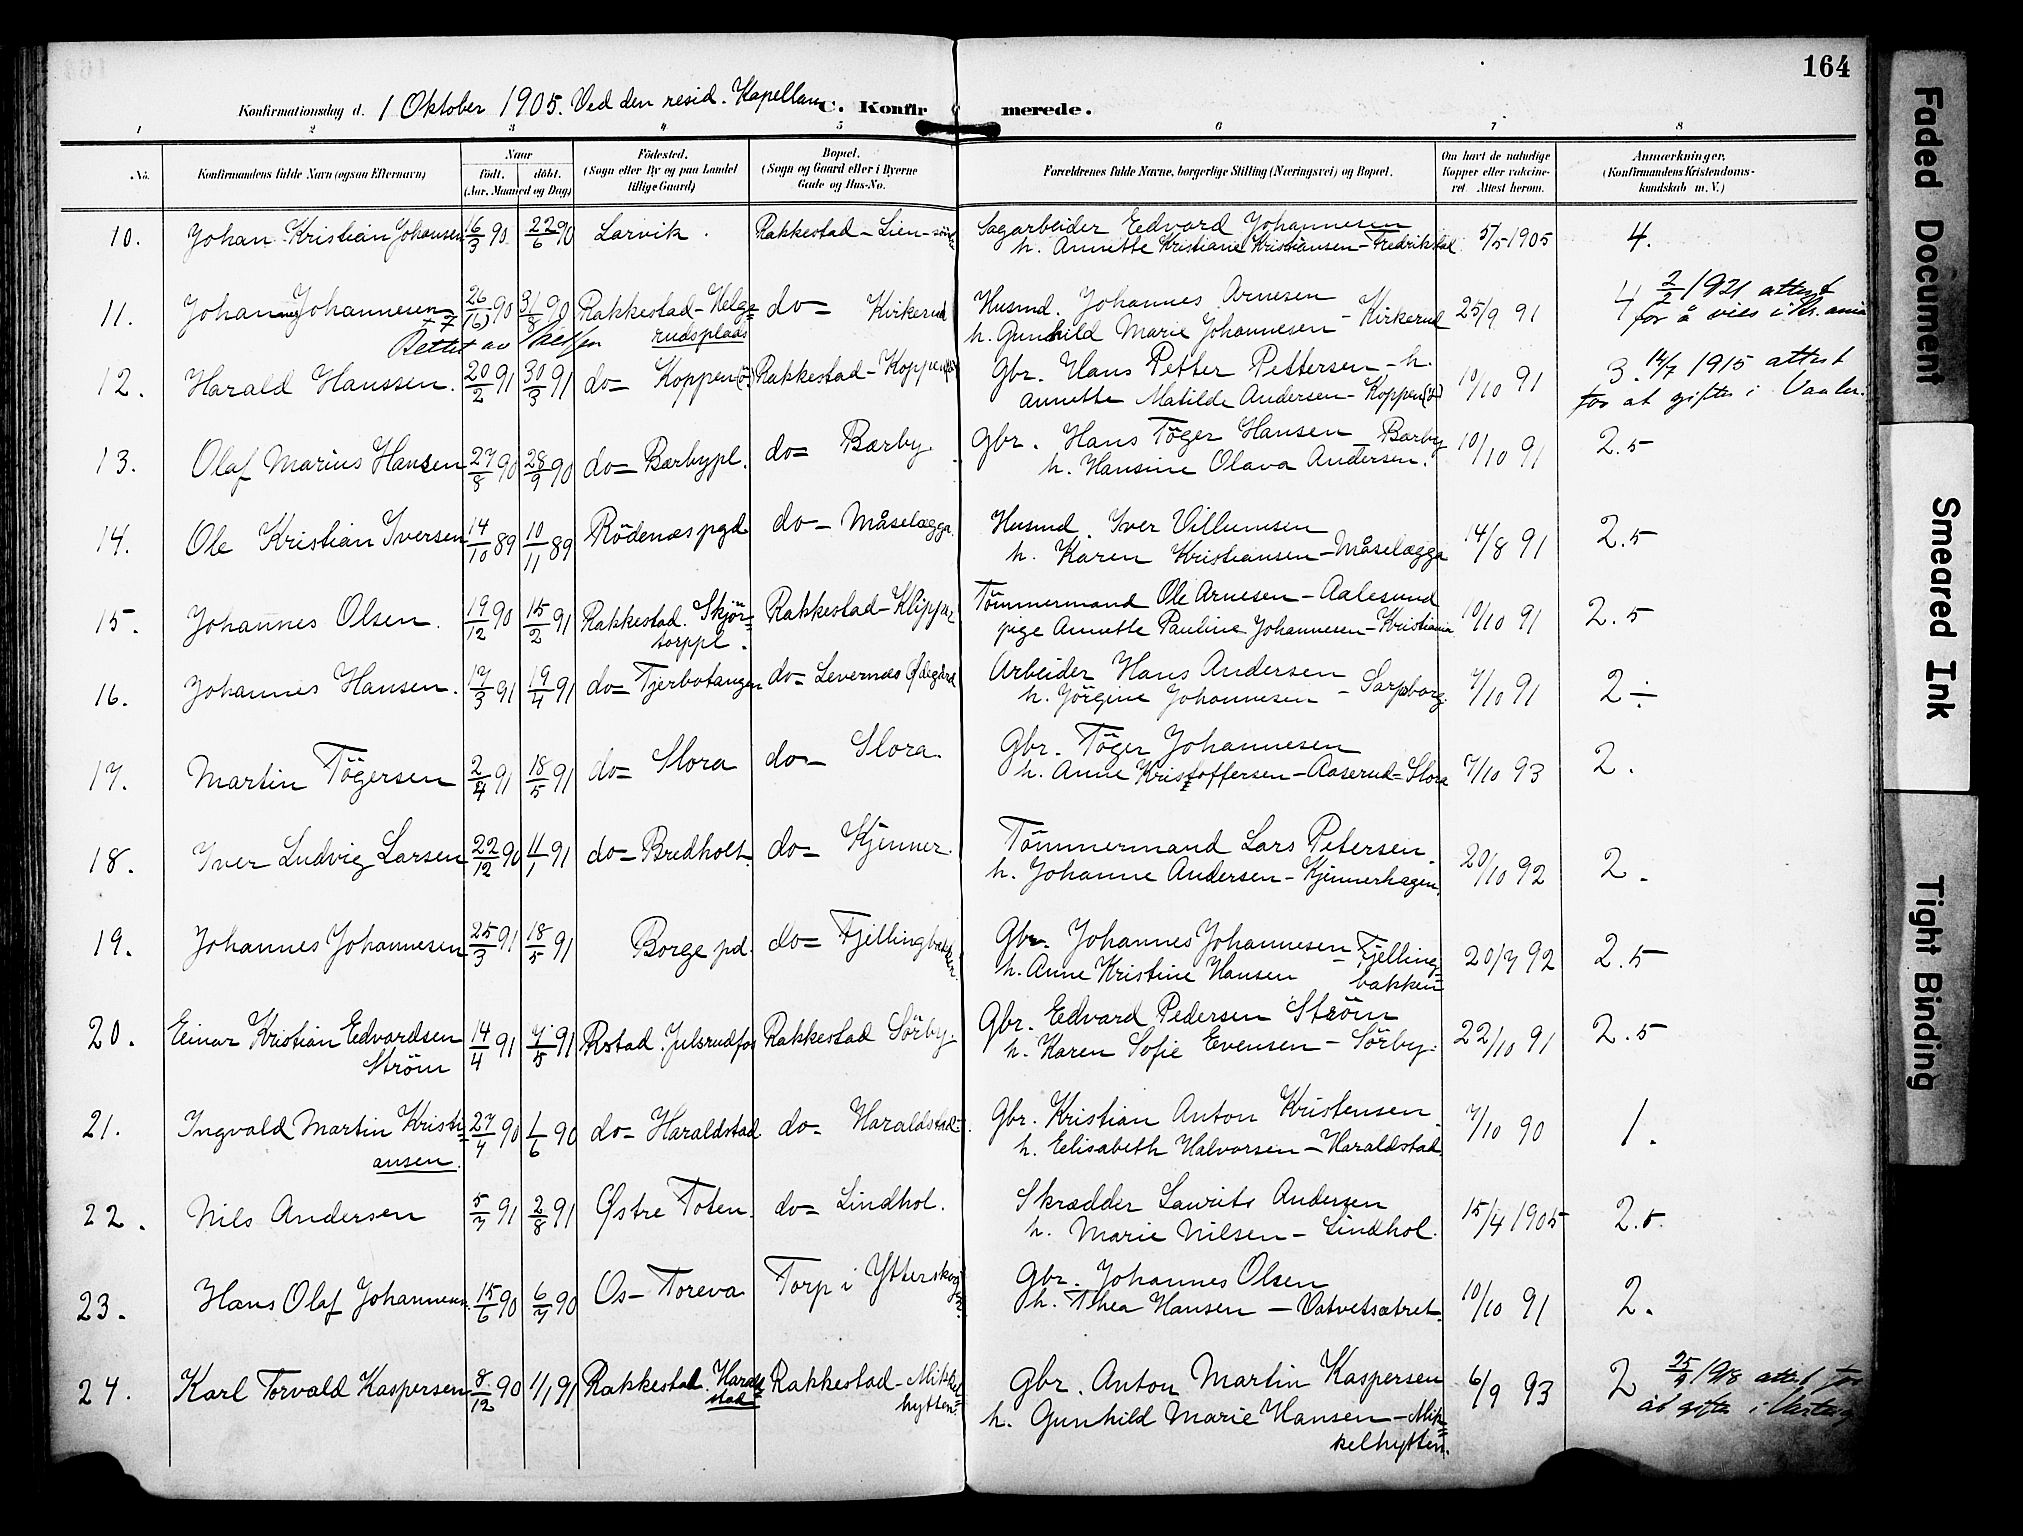 164
Konfirmationsdag d. 1 Oktober 1905. Ved den resid. Kapellan C. Konfir merede.
1 2 3 4 5 6 7 8
No. Konfirmandens fulde Navn (ogsaa Efternavn) Naar Födested. Bopæl. Forældrenes fulde Navne, borgerlige Stilling (Næringsvei) og Bopæl. Om havt de naturlige Anmærkninger.
födt. döbt. (Sogn eller By og paa Landet (Sogn og Gaard eller i Byerne Kopper eller vakcine- (Konfirmandens Kristendoms-
(Aar, Maaned og Dag) tillige Gaard) Gade og Hus-No. ret. Attest herom. kundskab m. V.)
10. Johan Kristian Johansen 16/3 90 22/6 90 Larvik. Rakkestad - Lien Sagarbeider Edvard Johannesen
h. Annette Kristiane Kristiansen - Fredrikstad 5/5 1905 4.
11. Johan Johannesen 26/6 90 31/8 90 Rakkestad - Helge= do= Kirkerud Husmd. Johannes Arnesen
rudsplads h. Gunhild Marie Johannesen - Kirkerud 25/9 91 4 2/2 1921 attest
for å vies i Kr.ania
Rettet av
12. Harald Hanssen. 20/2 91 30/3 91 do= Koppen(ö) Rakkestad - Koppen Gbr. Hans Petter Pettersen - h.
Annette Matilde Andersen - Koppen 10/10 91 3. 14/7 1915 attest
for at giftes i Vaaler.
13. Olaf Marius Hansen 27/8 90 28/9 90 do= Bærbypl. do= Bærby Gbr. Hans Töger Hansen - Bærby
h. Hansine Olava Andersen. 10/10 91 2.5
14. Ole Kristian Iversen 14/10 89 10/11 89 Rödenæs pgd. do - Måselægga Husmd. Iver Villumsen
h. Karen Kristiansen - Måselægga 14/8 91 2.5
15. Johannes Olsen. 19/12 90 15/2 91 Rakkestad. Skjör= Rakkestad - Klipper Tömmermand Ole Arnesen - Aalesund
torppl. pige Annette Pauline Johannesen - Kristiania 10/10 91 2.5
16. Johannes Hansen. 17/3 91 19/4 91 do= Tjerbotangen do= Levernæs Ødegård Arbeider Hans Andersen
h. Jörgine Johannesen - Sarpsborg. 7/10 91 2 ÷
17. Martin Tögersen 2/4 91 18/5 91 do= Slora do - Slora. Gbr. Töger Johannesen
h. Anne Kristoffersen - Aaserud - Slora 7/10 93 2.
18. Iver Ludvig Larsen 22/12 90 11/1 91 do= Bredholt do= Kjenner Tömmermand Lars Petersen.
h. Johanne Andersen - Kjennerhagen 20/10 92 2.
19. Johannes Johannesen 25/3 91 18/5 91 Borge pd. do= Fjellingbakken Gbr. Johannes Johannesen - Fjelling=
h. Anne Kristine Hansen bakken 20/7 92 2.5
20. Einar Kristian Edvardsen 14/4 91 7/5 91 Rstad. Julsrudfos Rakkestad Sörby Gbr. Edvard Pedersen Ström
Ström h. Karen Sofie Evensen - Sörby 22/10 91 2.5
21. Ingvald Martin Kristi= 27/4 90 1/6 90 do= Haraldstad do= Haraldstad Gbr. Kristian Anton Kristensen
ansen. h. Elisabeth Halvorsen - Haraldstad 7/10 90 1.
22. Nils Andersen 5/7 91 2/8 91 Østre Toten. do= Lindhol. Skrædder Laurits Andersen
h. Marie Nilsen - Lindhol. 15/4 1905 2.5.
23. Hans Olaf Johannesen 15/6 90 6/7 90 Os - Toreva Torp i Ytterskogen Gbr. Johannes Olsen
h. Thea Hansen - Vatvetsætret 10/10 91 2.
24. Karl Torvald Kaspersen 8/12 90 1/1 91 Rakkestad. Harald= Rakkestad - Mikkel= Gbr. Anton Martin Kaspersen
stad hytten h. Gunhild Marie Hansen - Mik=
kelhytten. 6/9 93 2 1918 attest for
at gifte i
Faded Document
Smeared Ink
Tight Binding